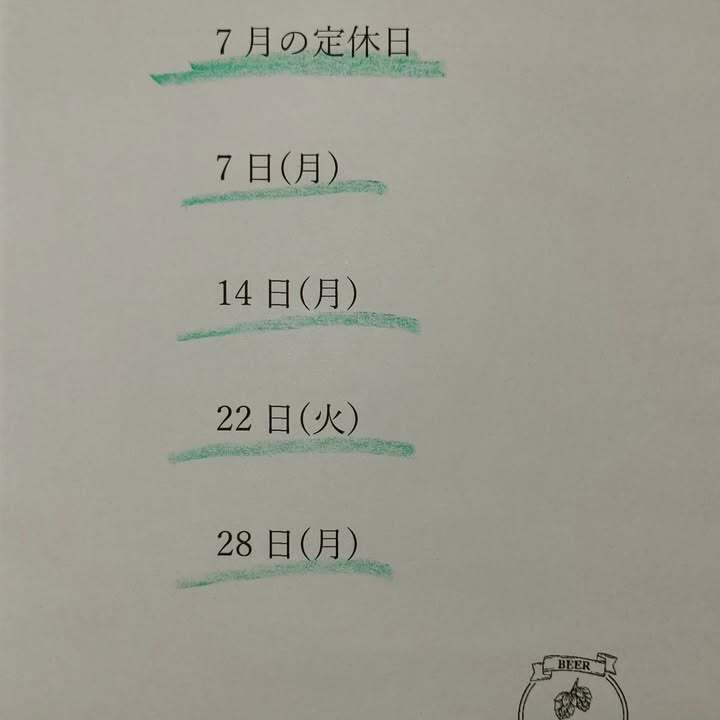 7月の定休日
7日(月)
14日(月)
22日(火)
28日(月)
BEER